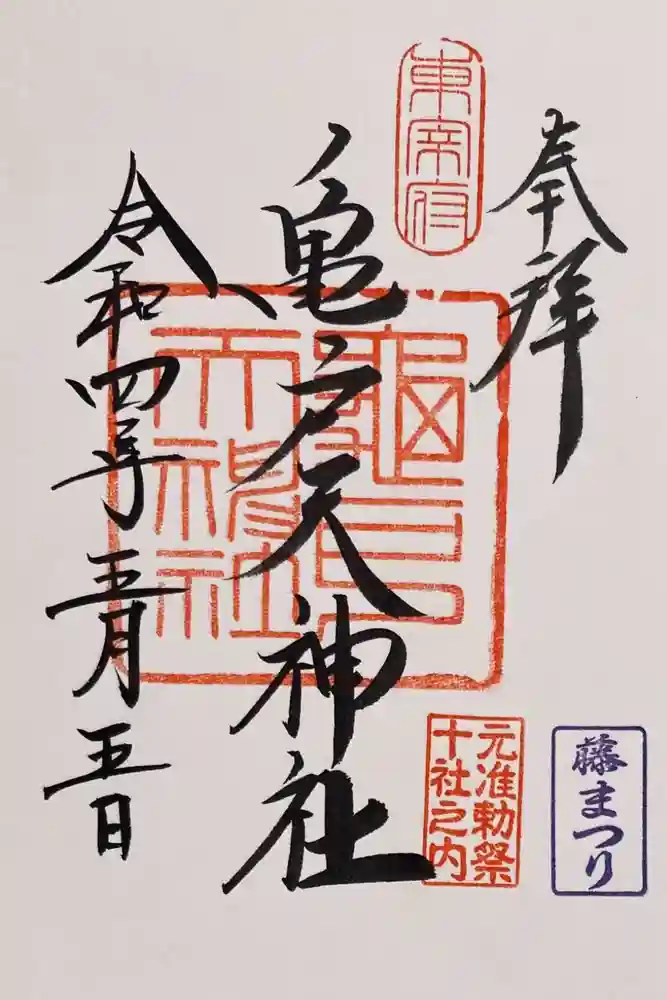 奉拝
東宰府
亀戸天神社
令和四年五月五日
元准勅祭
十社之内
藤まつり